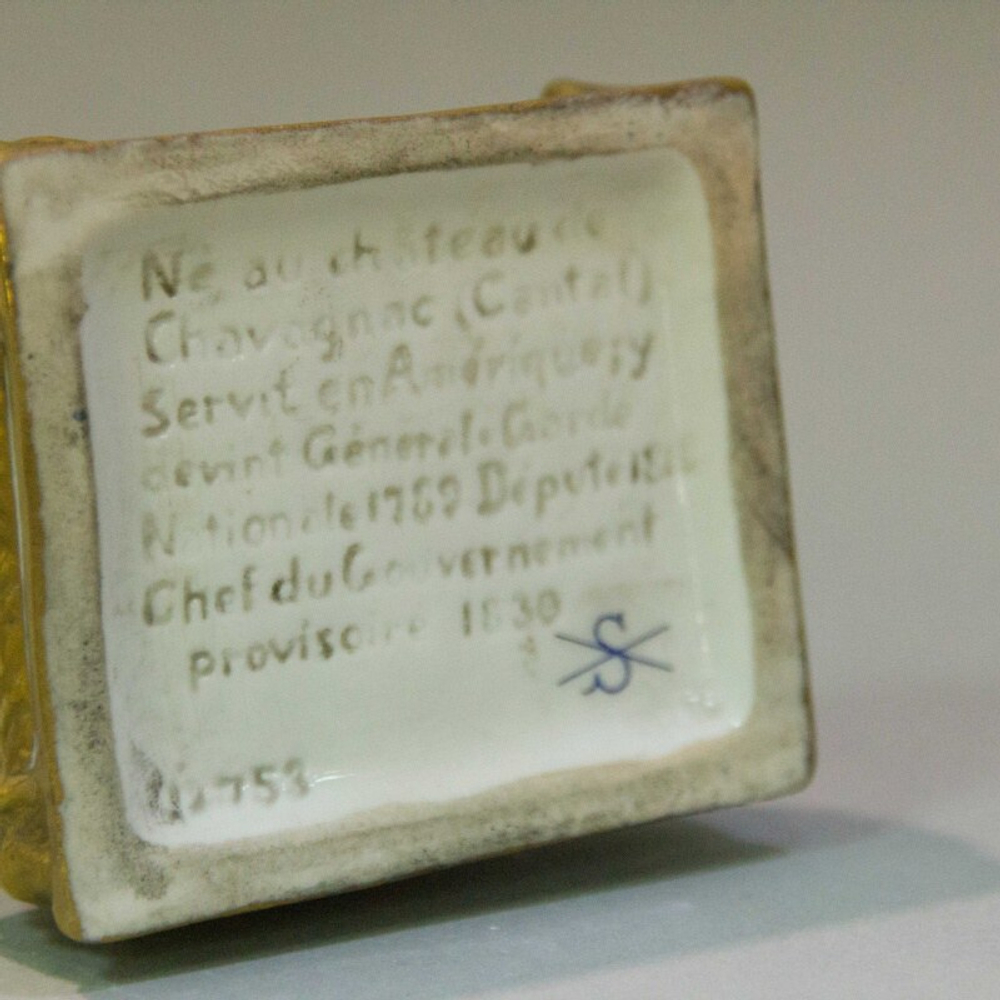 Né au château de
Chavagnac (Cantal)
Servit en Amérique, y
devint Général. Garde
Nationale 1789 Député
Chef du Gouvernement
provisoire 1830
S